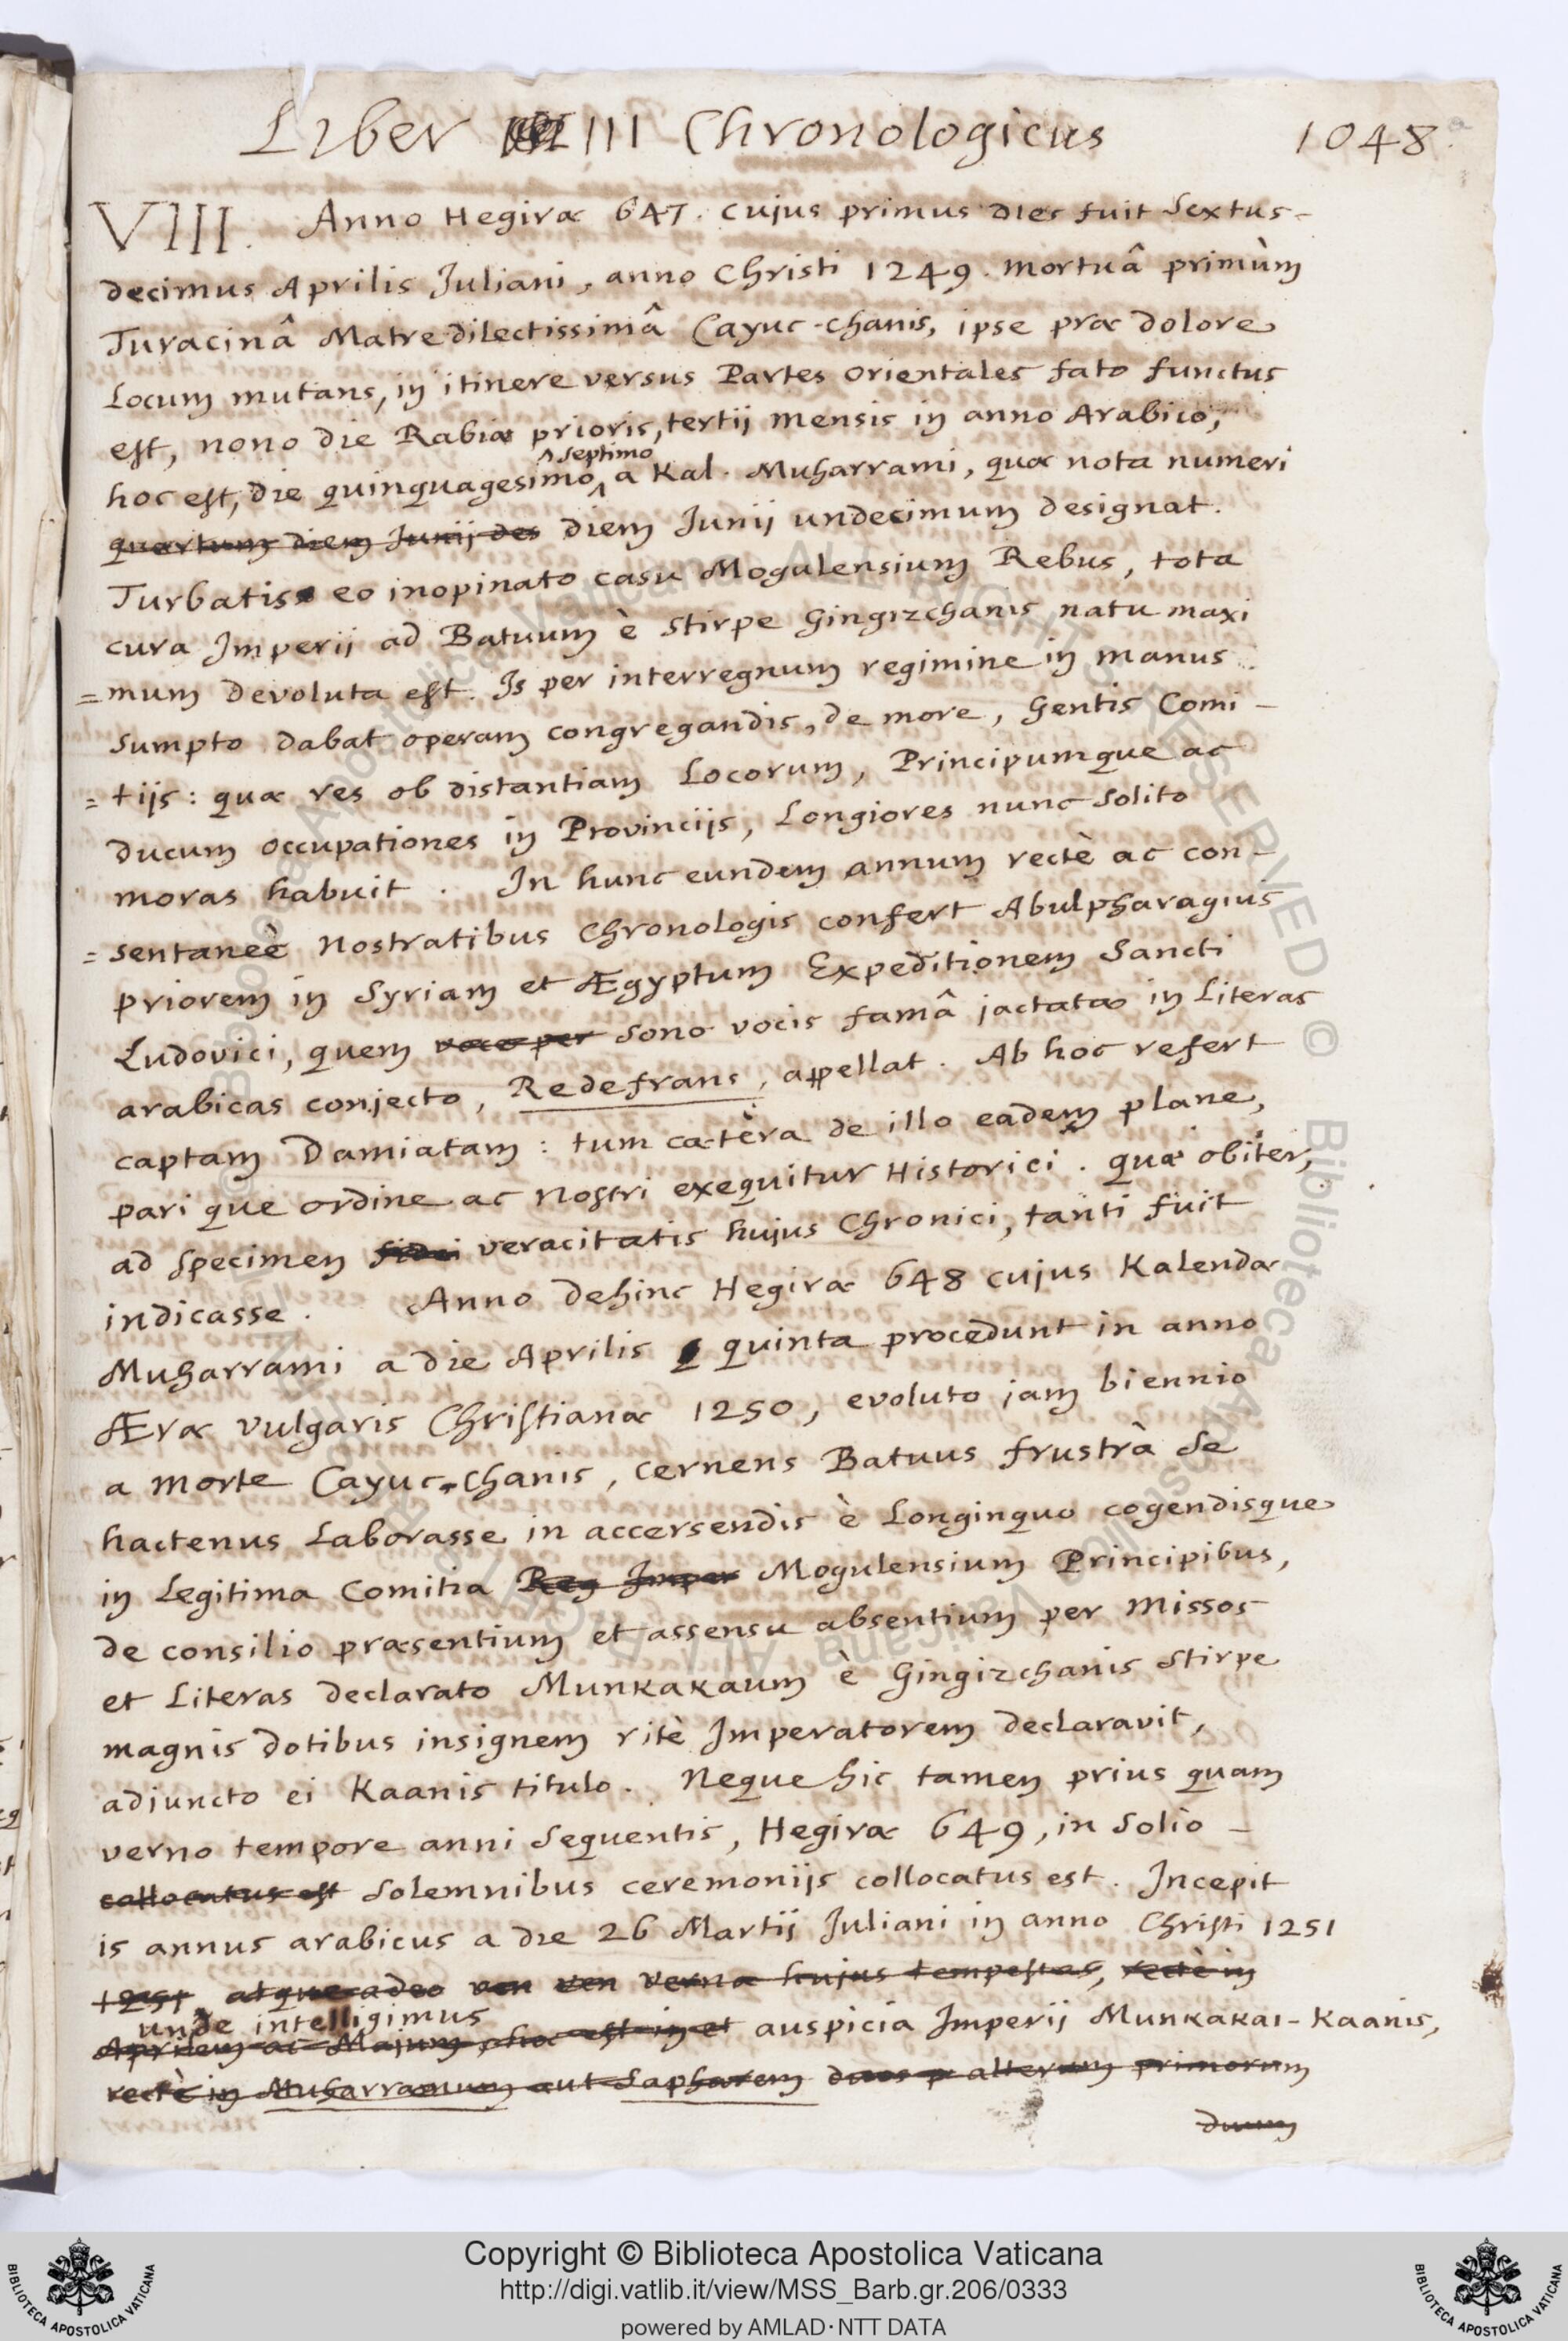 Liber III Chronologicus 1048.a
VIII. Anno Hegiræ 647. cujus primus dies fuit Sextus-
decimus Aprilis Juliani, anno Christi 1249. mortuâ primùm
Turacinâ Matre dilectissimâ Cayuc-chanis, ipse præ dolore
Locum mutans, in itinere versus Partes orientales fato functus
est, nono die Rabiæ prioris, tertij mensis in anno Arabico,
septimo
hoc est, die quinquagesimo a Kal. Muharrami, quæ nota numeri
quartum diem Junij des diem Junij undecimum designat.
Turbatis eo inopinato casu Mogulensium Rebus, tota
cura Imperij ad Batuum è stirpe Gingizchanis natu maxi
=mum devoluta est. Is per interregnum regimine in manus
sumpto dabat operam congregandis, de more, Gentis Comi-
=tijs: quæ res ob distantiam Locorum, Principumque ac
ducum occupationes in Provincijs, Longiores nunc solito
moras habuit. In hunc eundem annum rectè ac con-
=sentaneè nostratibus Chronologis confert Abulpharagius
priorem in Syriam et Ægyptum Expeditionem Sancti
Ludovici, quem voce per sono vocis famâ jactatæ in Literas
arabicas conjecto, Redefrans, appellat. Ab hoc refert
captam Damiatam: tum cætèra de illo eadem plane,
pari que ordine ac nostri exequitur Historici. quæ obiter,
ad specimen fidei veracitatis hujus Chronici, tanti fuit
indicasse. Anno dehinc Hegiræ 648 cujus Kalendæ
Muharrami a die Aprilis quinta procedunt in anno
Æræ vulgaris Christianæ 1250, evoluto jam biennio
a morte Cayuc-chanis, cernens Batuus frustrà se
hactenus Laborasse in accersendis è Longinquo cogendisque
in Legitima Comitia Reg Imper Mogulensium Principibus,
de consilio præsentium et assensu absentium per missos
et Literas declarato Munkakaum è Gingizchanis stirpe
magnis dotibus insignem ritè Imperatorem declaravit,
adjuncto ei Kaanis titulo. Neque hic tamen prius quam
verno tempore anni sequentis, Hegiræ 649, in solio-
collocatus est solemnibus ceremonijs collocatus est. Incepit
is annus arabicus a die 26 Martij Juliani in anno Christi 1251
1251, atque adeo ven ven verna hujus tempestas, rectè in
unde intelligimus
Aprilem ac Majum, hoc est in et auspicia Imperij Munkakai-Kaanis,
rectè in Muharramum aut Sapharem duos p alterum primorum
duum
Copyright © Biblioteca Apostolica Vaticana
http://digi.vatlib.it/view/MSS_Barb.gr.206/0333
powered by AMLAD·NTT DATA
BIBLIOTECA APOSTOLICA VATICANA
BIBLIOTECA APOSTOLICA VATICANA